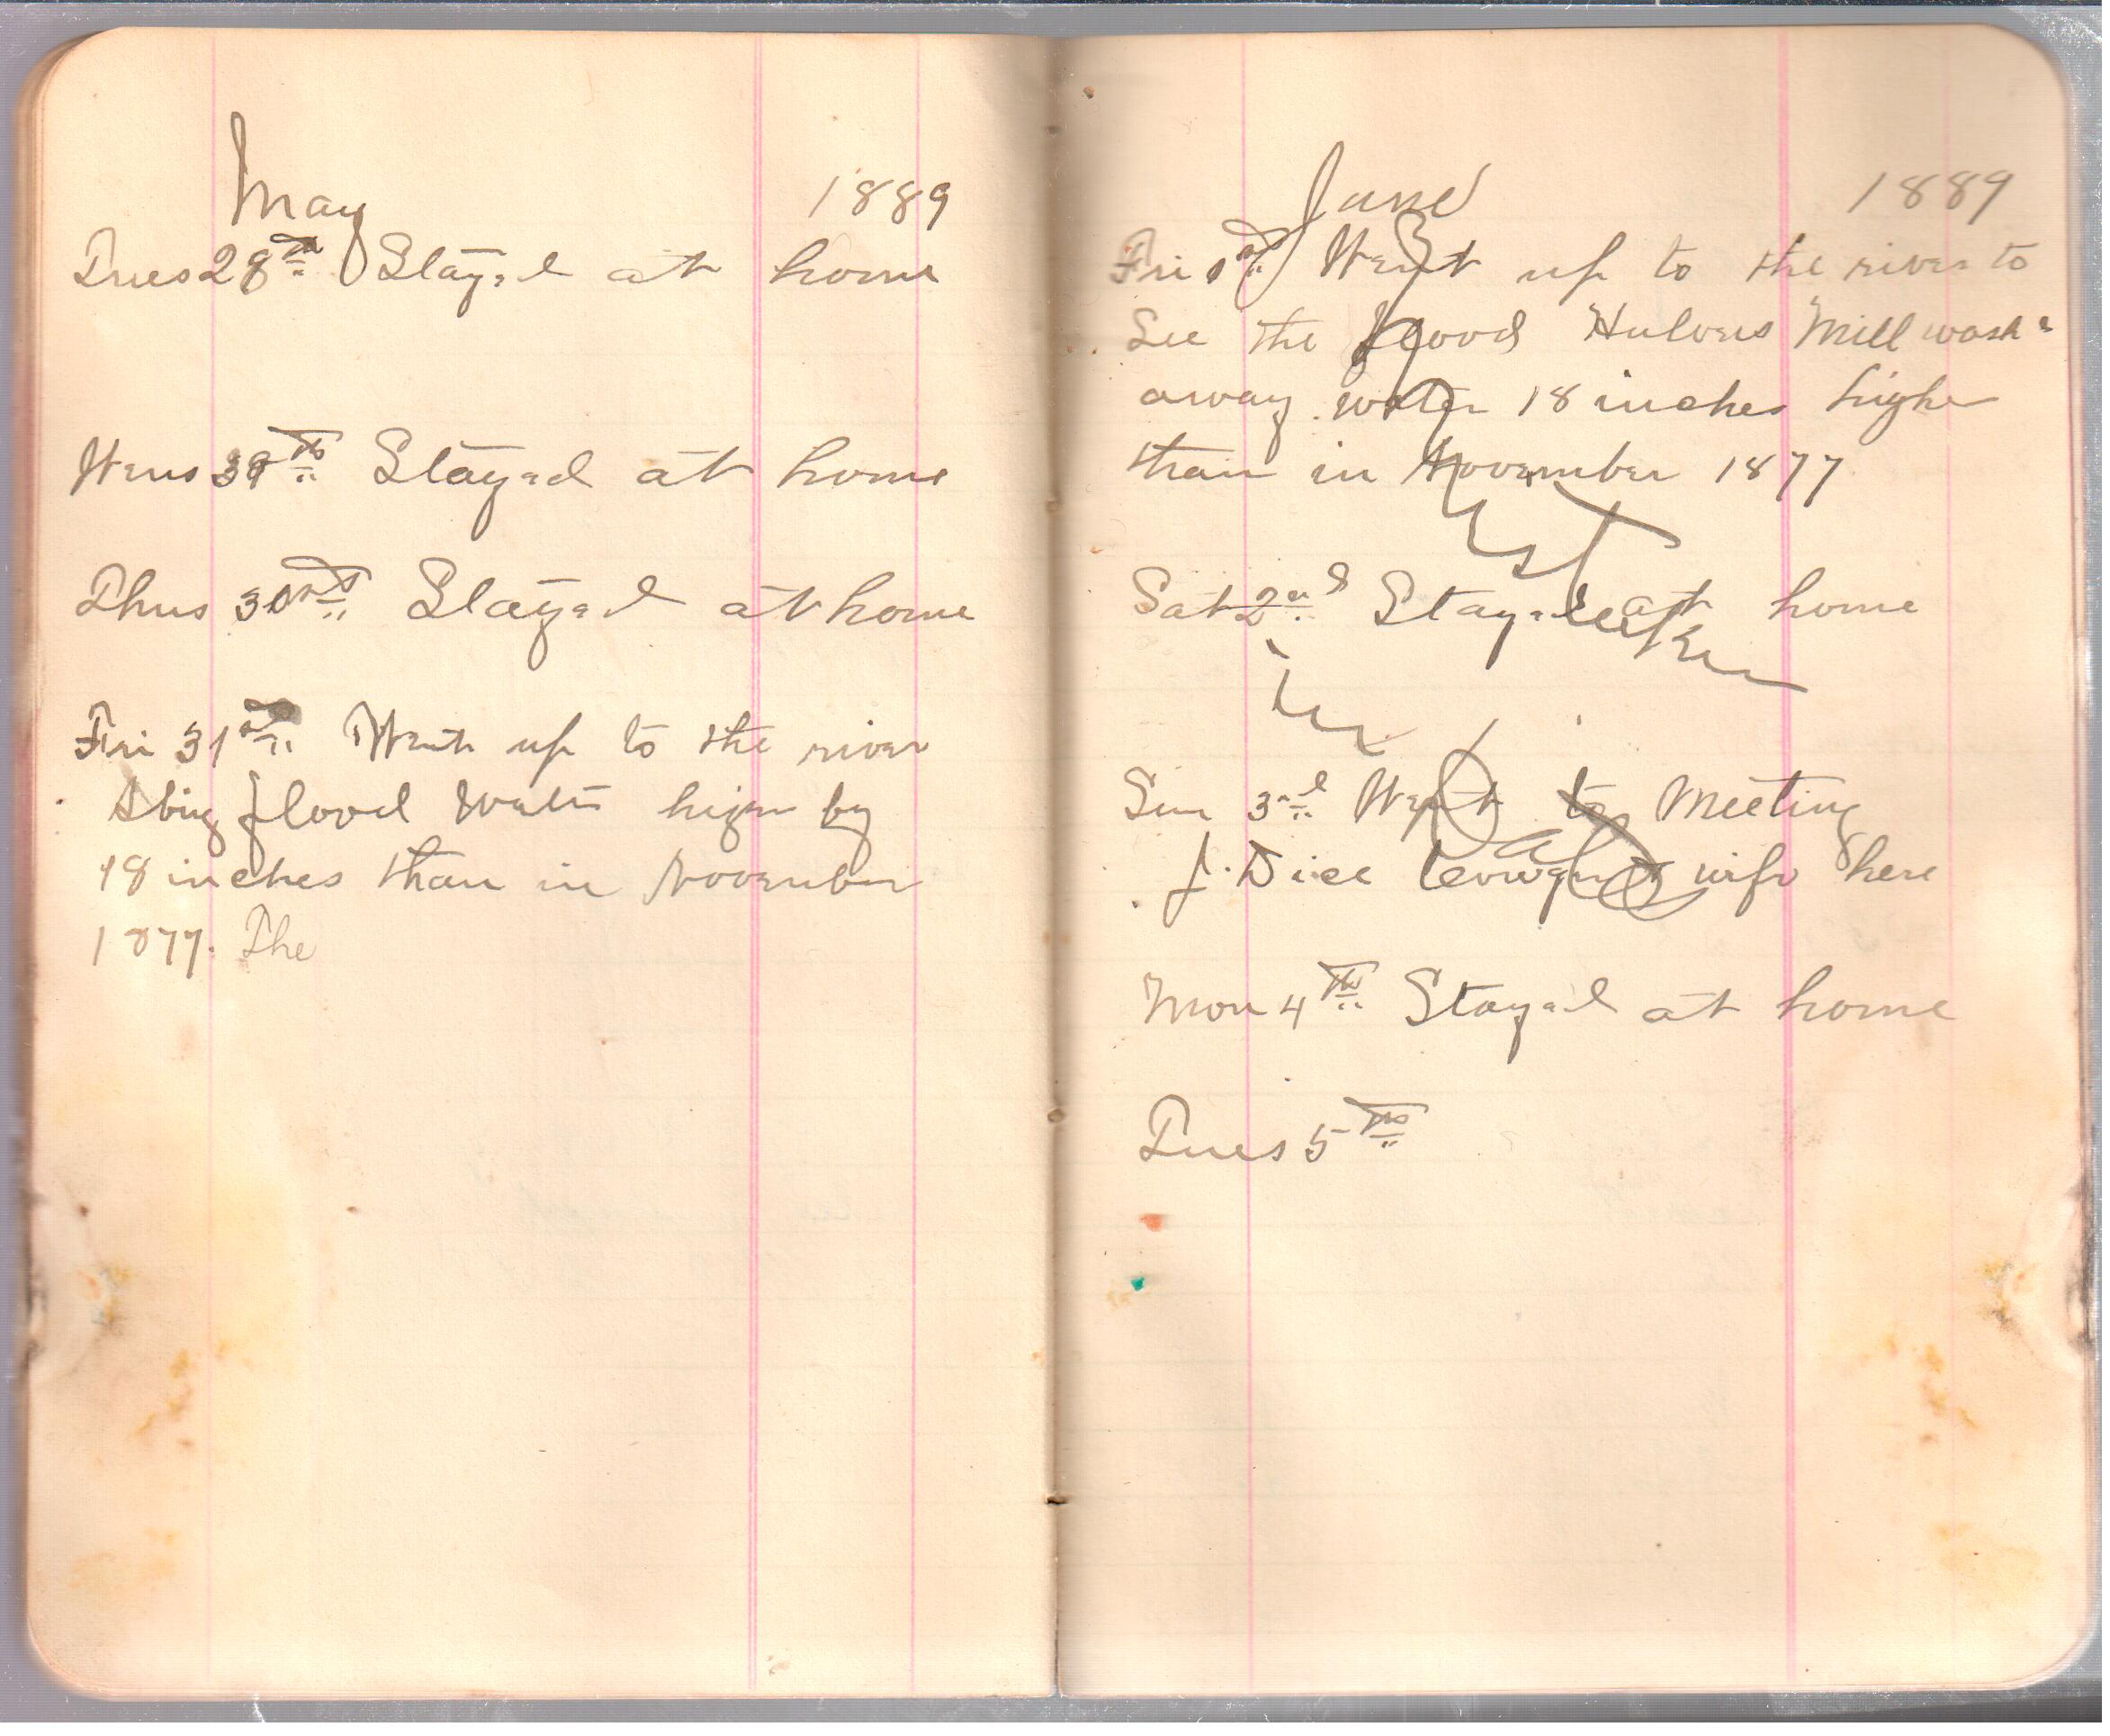 May 1889
Tues 28th Stayed at home
Wens 39th Stayed at home
Thus 30th Stayed at home
Fri 31st Went up to the river
A big flood Water higer by
18 inches than in November
1877. The
June 1889
Fri 1st Went up to the river to
See the flood Hulvers Mill wash
away water 18 inches higher
than in November 1877
Sat 2nd Stayed at home
Sun 3rd Went to Meeting
J. Dice wife here
Mon 4th Stayed at home
Tues 5th